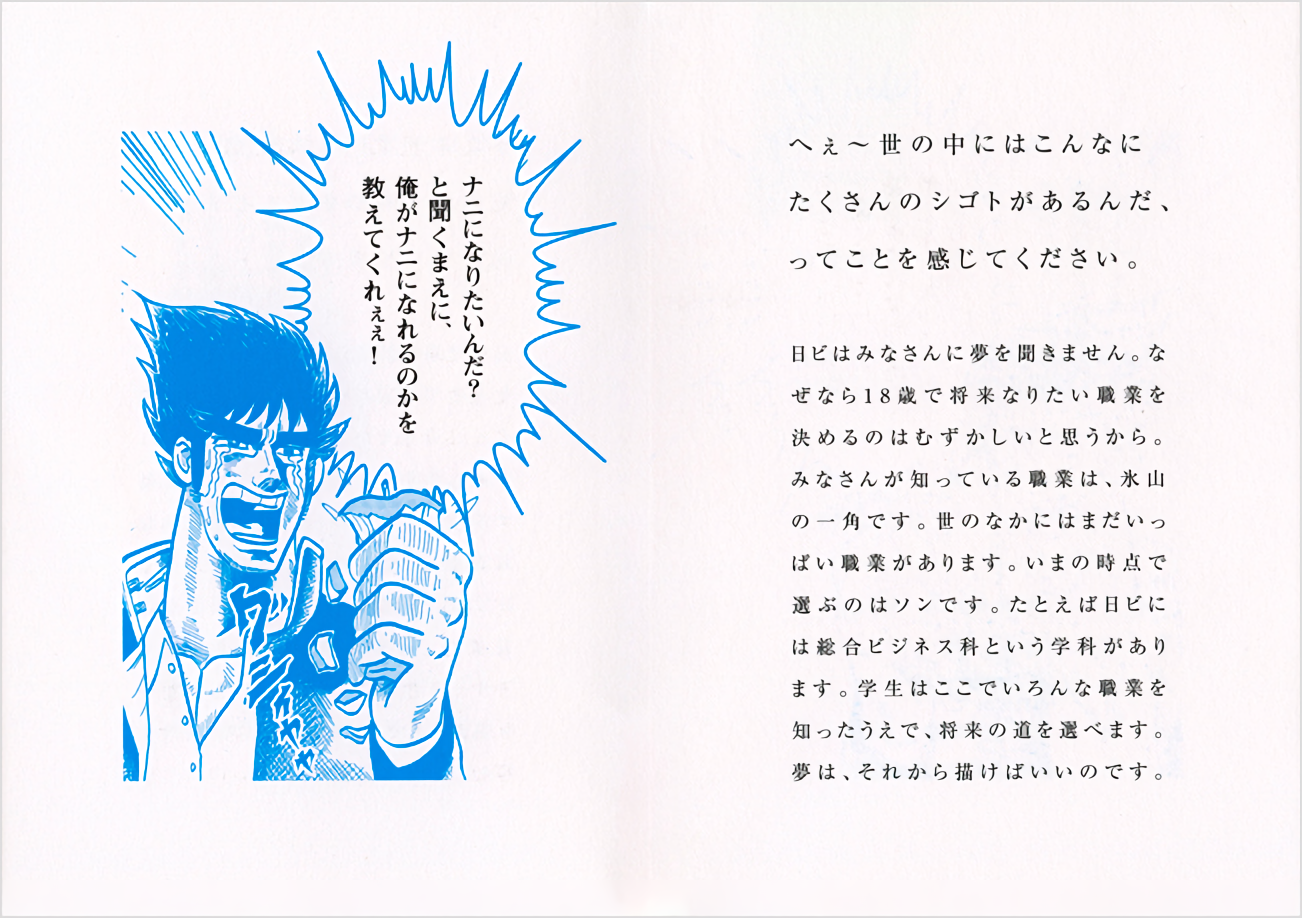 ナニになりたいんだ?
と聞くまえに、
俺がナニになれるのかを
教えてくれぇぇ!
グシャャャ
へぇ〜世の中にはこんなに
たくさんのシゴトがあるんだ、
ってことを感じてください。
日ビはみなさんに夢を聞きません。な
ぜなら18歳で将来なりたい職業を
決めるのはむずかしいと思うから。
みなさんが知っている職業は、氷山
の一角です。世のなかにはまだいっ
ぱい職業があります。いまの時点で
選ぶのはソンです。たとえば日ビに
は総合ビジネス科という学科があり
ます。学生はここでいろんな職業を
知ったうえで、将来の道を選べます。
夢は、それから描けばいいのです。